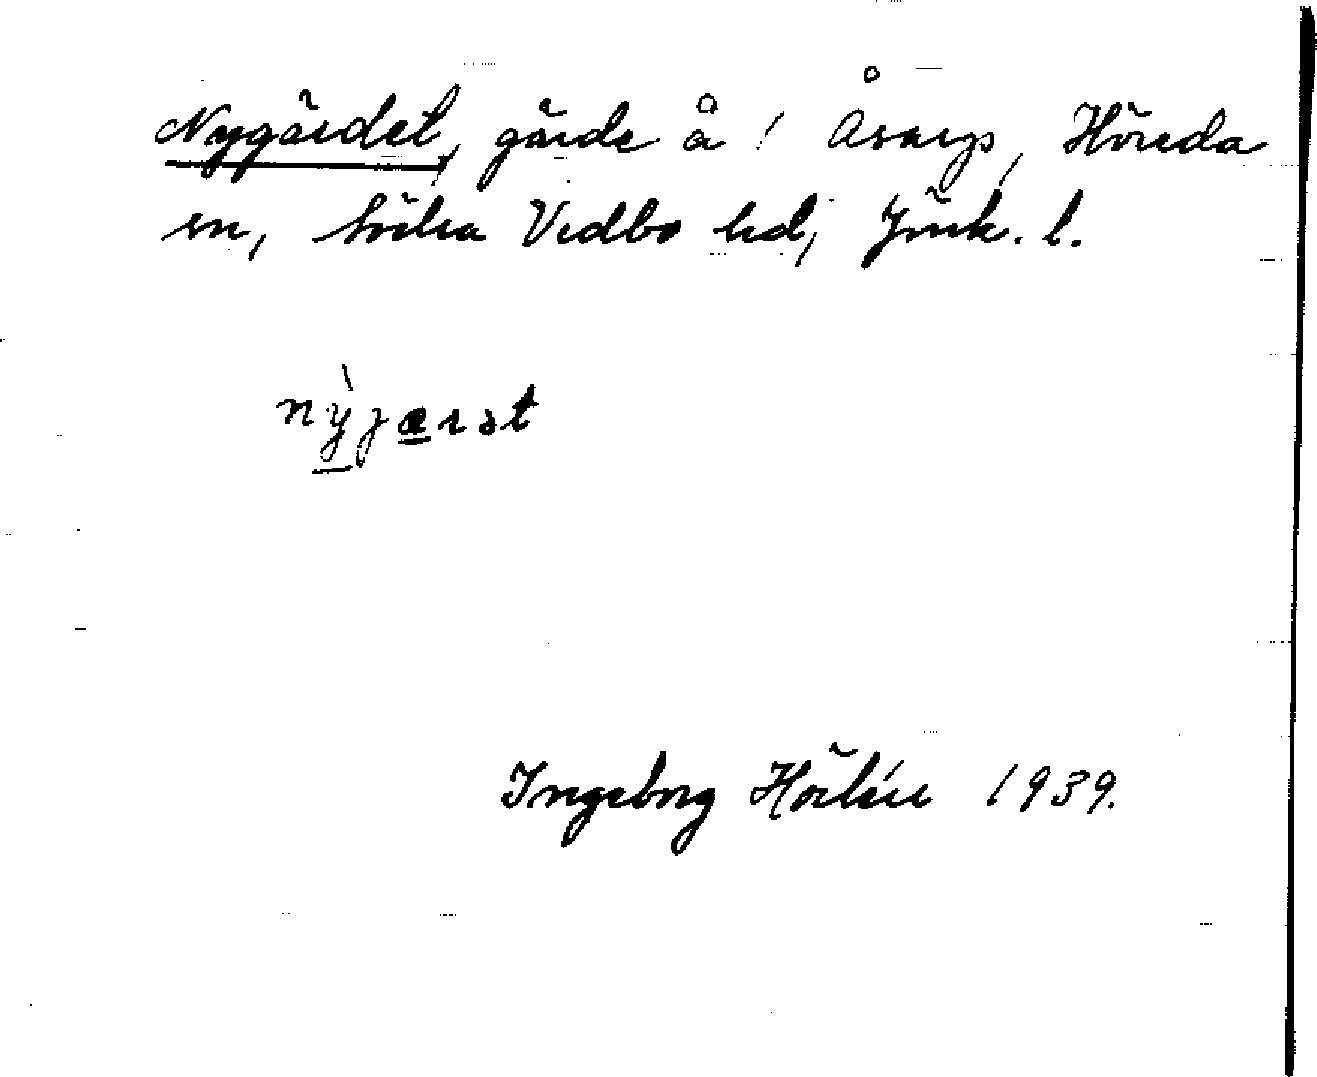 Nygärdet, gärde å 1 Åsarp, Höreda
sn, Södra Vedbo hd, Jönk. l.
nỳjærət
Ingeborg Hörlén 1939.